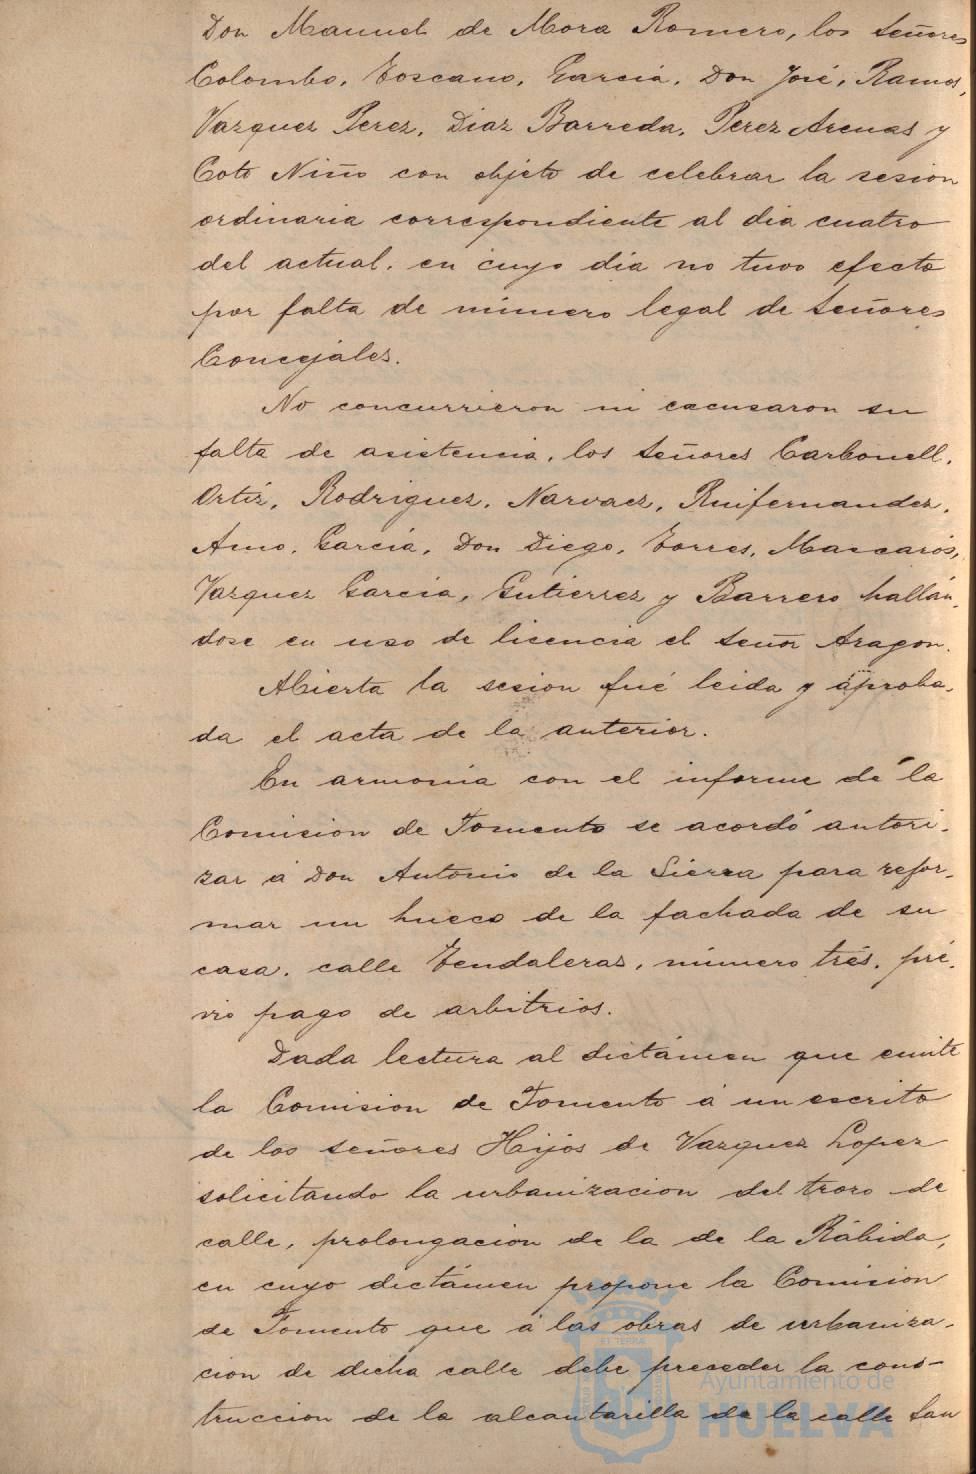 Don Manuel de Mora Romero, los señores
Colombo, Toscano, Garcia, Don José, Ramos,
Vazquez Perez, Diaz Barreda, Perez Arenas y
Coto Niño con objeto de celebrar la sesion
ordinaria correspondiente al dia cuatro
del actual, en cuyo dia no tuvo efecto
por falta de número legal de señores
Concejáles.
No concurrieron ni escusaron su
falta de asistencia, los señores Carbonell,
Ortiz, Rodriguez, Narvaez, Ruifernandez,
Amo, Garcia, Don Diego, Torres, Mascarós,
Vazquez Garcia, Gutierrez y Barrero hallán-
dose en uso de licencia el señor Aragon.
Abierta la sesion fué leida y aproba-
da el acta de la anterior.
En armonia con el informe de la
Comision de Fomento se acordó autori-
zar á Don Antonio de la Sierra para refor-
mar un hueco de la fachada de su
casa, calle Tendaleras, número trés, pré-
vio pago de arbitrios.
Dada lectura al dictámen que emite
la Comision de Fomento á un escrito
de los señores Hijos de Vazquez Lopez
solicitando la urbanizacion del trozo de
calle, prolongacion de la de la Rábida,
en cuyo dictámen propone la Comision
de Fomento que á las obras de urbaniza-
cion de dicha calle debe preceder la cons-
truccion de la alcantarilla de la calle San
Ayuntamiento de
HUELVA